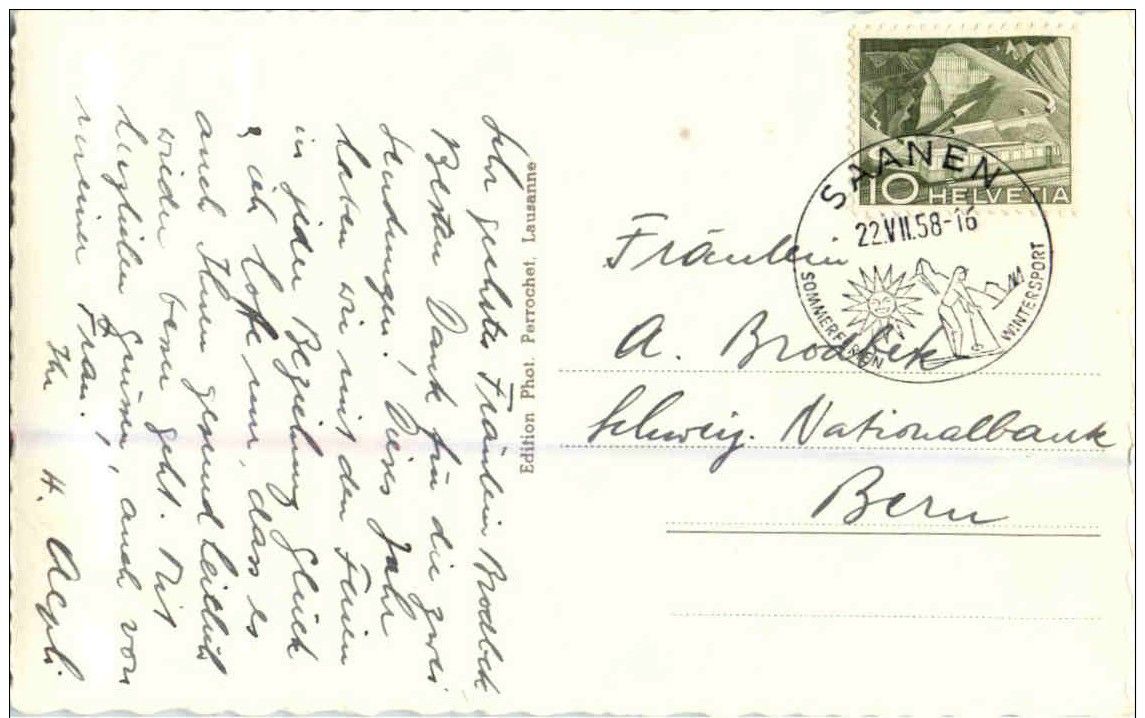 Sehr geehrtes Fräulein Brodbek
Besten Dank für die zwei
Sendungen. Dieses Jahr
haben wir mit den Ferien
in jeder Beziehung Glück
& ich hoffe nun, dass es
auch Ihnen gesundheitlich
wieder besser geht. Mit
herzlichen Grüssen, auch von
meiner Frau.
Ihr H.
Edition Phot. Perrochet, Lausanne
10 HELVETIA
SAANEN
22.VII.58-16
SOMMERFERIEN
WINTERSPORT
Fräulein
A. Brodbek
Schweiz. Nationalbank
Bern